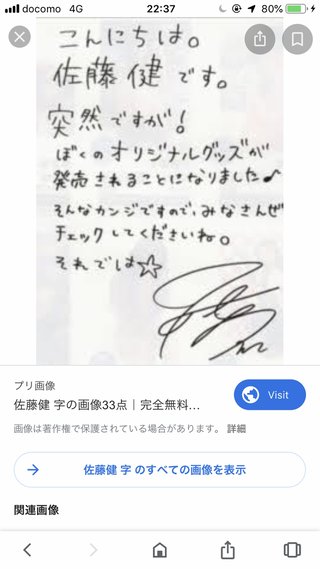 docomo 4G 22:37 80%
こんにちは。
佐藤健です。
突然ですが!
ぼくのオリジナルグッズが
発売されることになりました♪
そんなカンジですので、みなさんぜひ
チェックしてくださいね。
それでは☆
プリ画像
佐藤健 字の画像33点|完全無料…
Visit
画像は著作権で保護されている場合があります。 詳細
佐藤健 字 のすべての画像を表示
関連画像